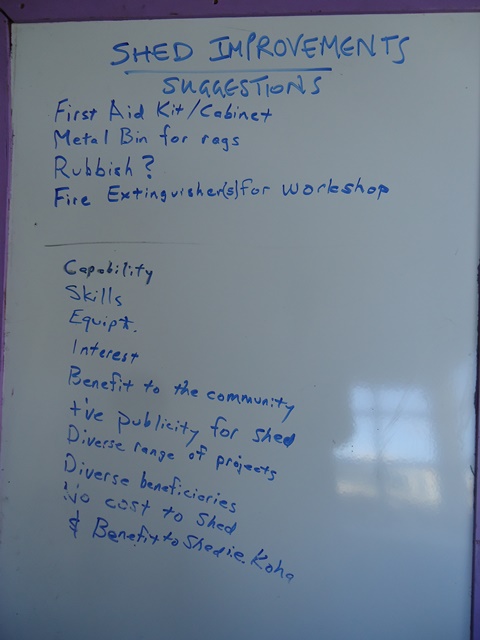 SHED IMPROVEMENTS
SUGGESTIONS
First Aid Kit/Cabinet
Metal Bin for rags
Rubbish?
Fire Extinguisher(s) for workshop
Capability
Skills
Equipt.
Interest
Benefit to the community
+'ve publicity for shed
Diverse range of projects
Diverse beneficiaries
No cost to shed
$ Benefit to Shed i.e. Koha